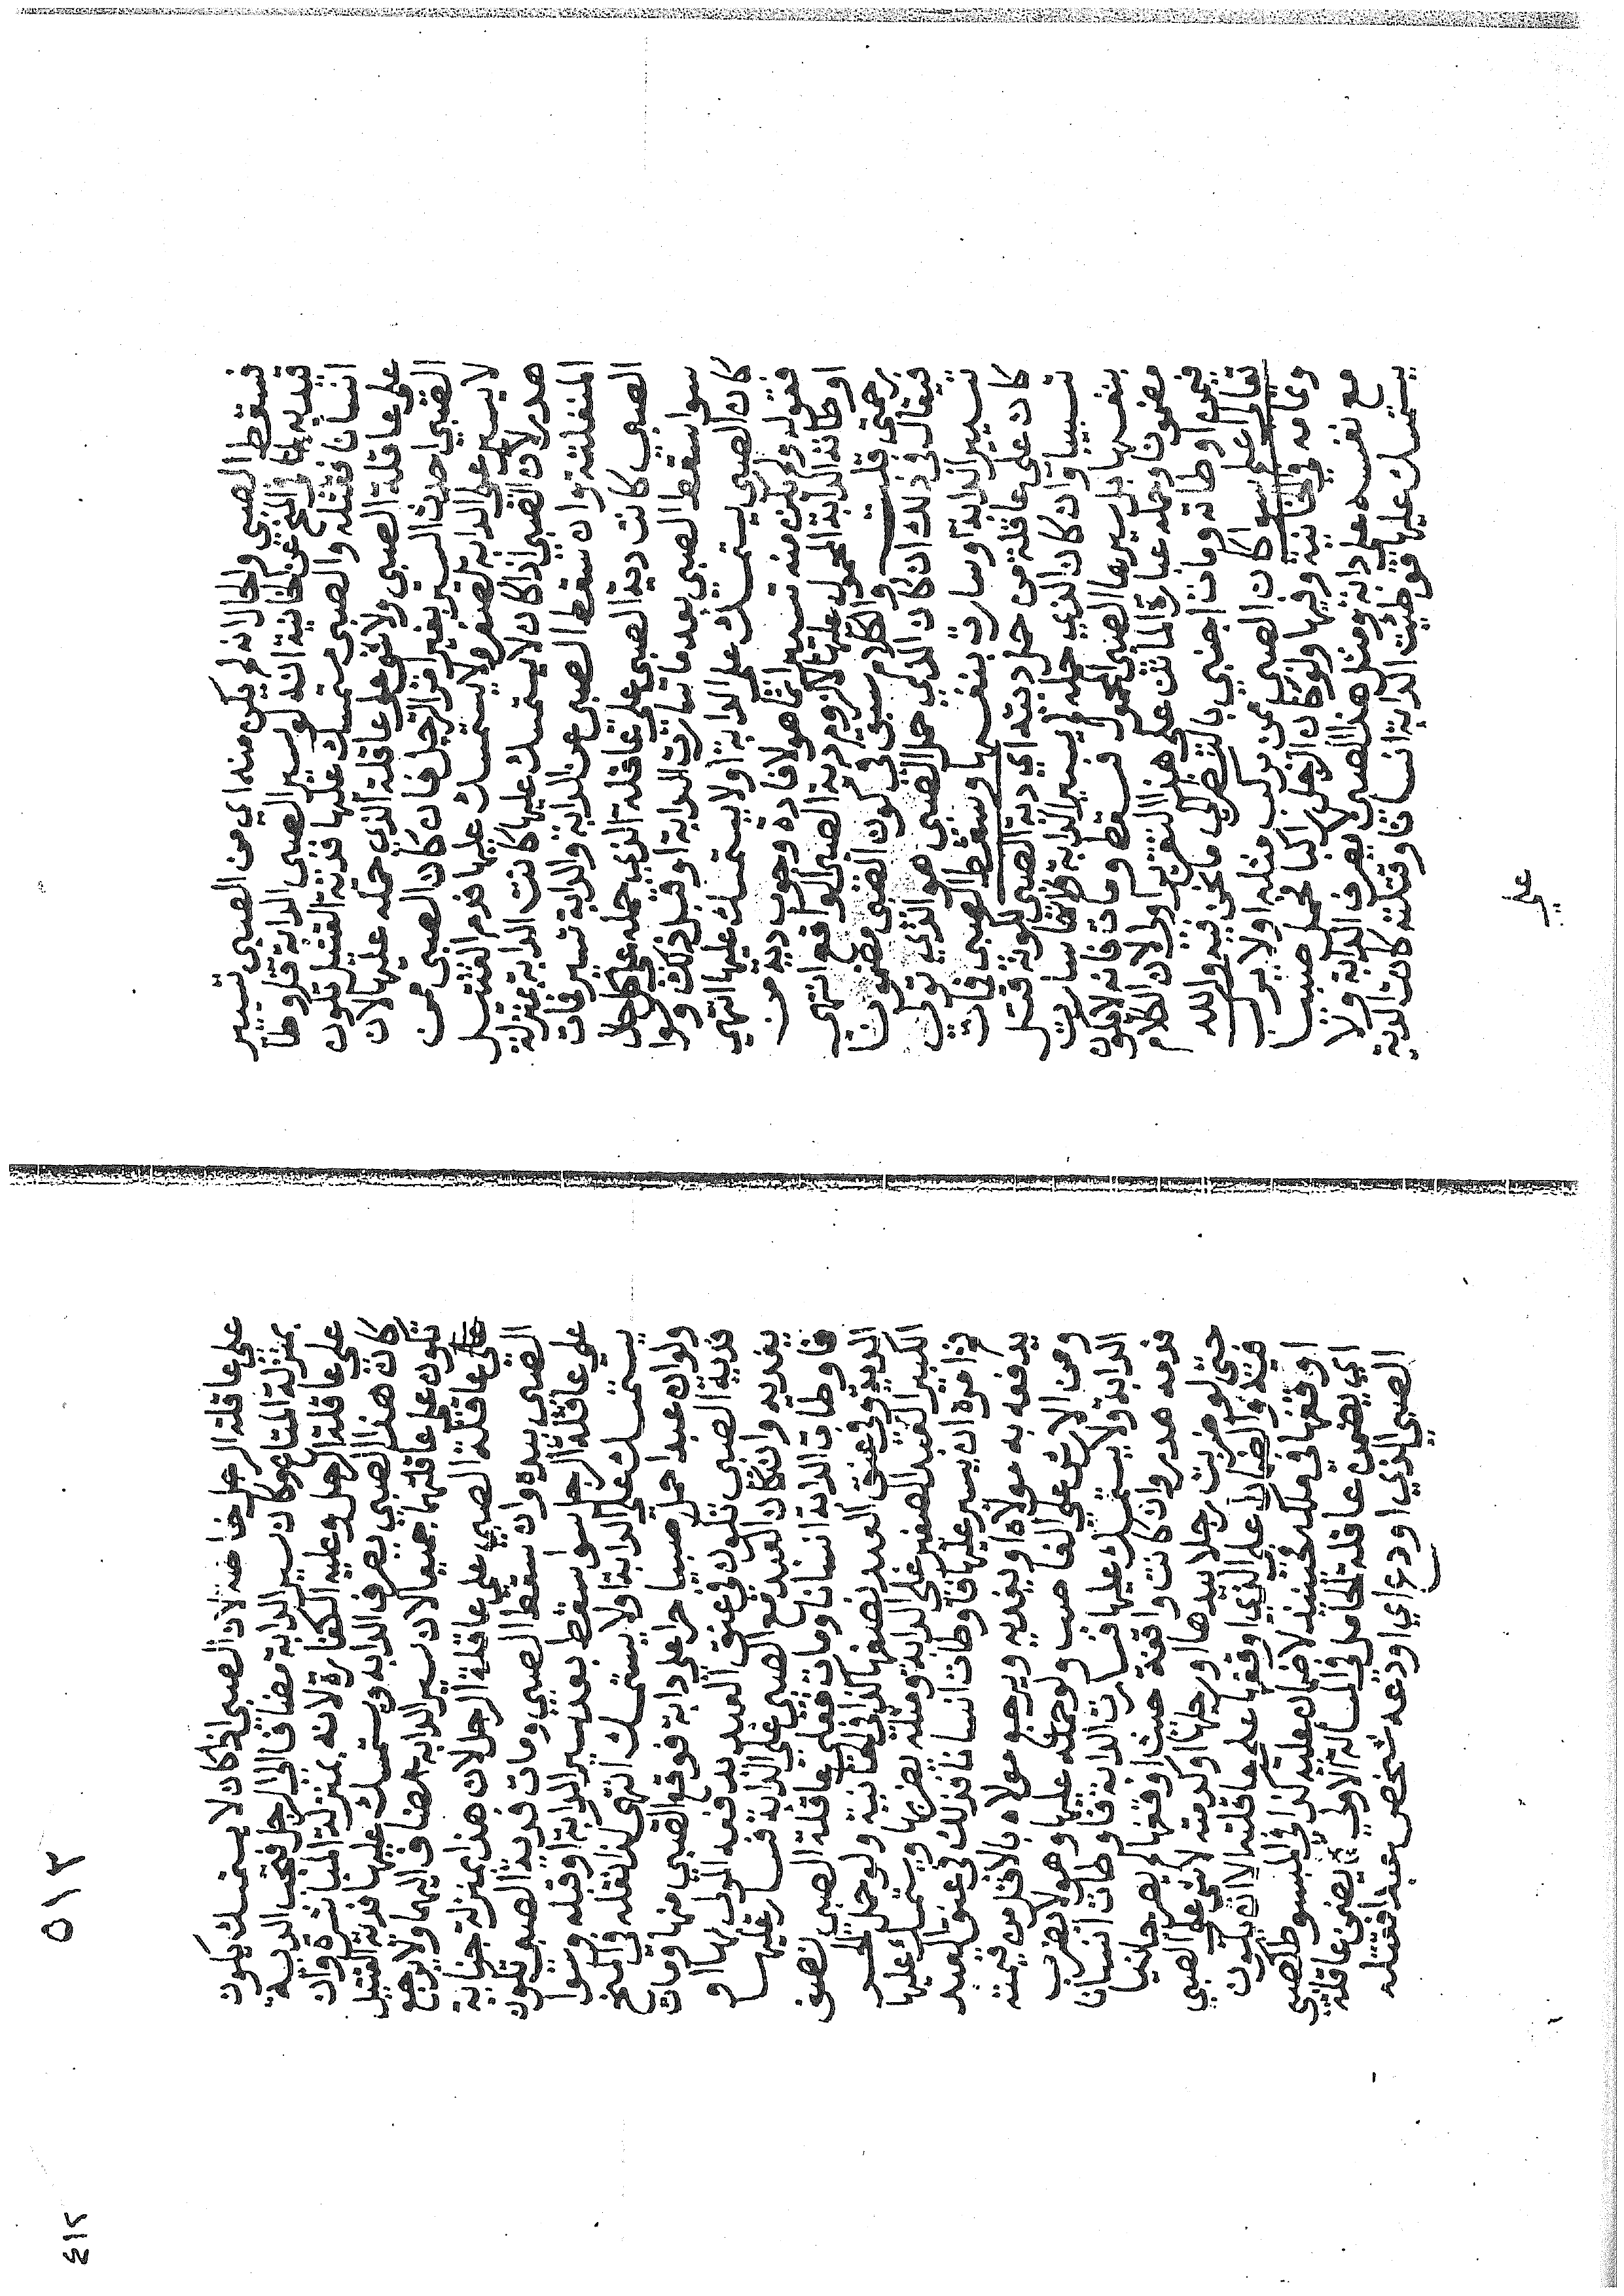 فسقط الصبي والحال انه لم يكن منه اي من الصبي تسيير
فديته لما في المنح عن الخانية انه لو سير الصبي الدابة فاوطأ
انسانا فقتله والصبي مستمسك عليها فدية القتيل تكون
على عاقلة الصبي ولا شي على عاقلة الذي حمله عليها لان
الصبي احدث السير بغير امر الرجل فان كان الصبي ممن
لا يسير على الدابة لصغره ولا يستمسك عليها فدم القتيل
هدر لان الصبي اذا كان لا يستمسك عليها كانت الدابة بمنزلة
المنفلتة وان سقط الصبي عن الدابة والدابة تسير فمات
الصبي كانت دية الصبي على عاقلة الذي حمله على كل حال
سوا سقط الصبي بعد ما سارت الدابة او قبل ذلك وسوا
كان الصبي يستمسك على الدابة او لا يستمسك عليها انتهى
فقوله ولم يكن منه تسيير انما هو لافادة وجوب دية من
اوطأته الدابة المحمول عليها لا لزوم دية الصبي الواقع انتهى
رحمتي قلت والكلام سبق في كون الصبي مضمونا
فيقال في ذلك ان كان الذي حمل الصبي هو الذي تولى
تسيير الدابة او سارت بنفسها وسقط الصبي فمات
كان على عاقلة من حمل ديته اي دية الصبي لكونه قتل
تسببا وان كان الذي حمله لم يسير الدابة ولا سارت
بنفسها بل سيرها الصبي المحمول فسقط ومات فانه لا يكون
مضمونا وحمله عبارة الماتن على هذا التقرير اولى لان الكلام
فيمن اوطأته ومات اجنبي بالنظر الى ما نحن فيه والله
تعالى اعلم سوا كان الصبي ممن يركب مثله او لا يركب
وتمامه في الخانية وفيها ولو كان الرجل راكبا فحمل صبيا
مع نفسه على دابة ومثل هذا الصبي لا يصرف الدابة ولا
يستمسك عليها فوطئت الدابة انسانا وقتلته كانت الدية
على
٥١٣
على عاقلة الرجل خاصة لان الصبي اذا كان لا يستمسك يكون
بمنزلة المتاع وكان سير الدابة مضافا الى الرجل فتجب الدية
على عاقلة الرجل وعليه الكفارة لانه بمنزلة المباشرة وان
كان هذا الصبي يصرف الدابة ويستمسك عليها فدية القتيل
تكون على عاقلتهما جميعا لان سير الدابة مضاف اليهما ولا يرجع
عاقلة الصبي على عاقلة الرجل لان هذا بمنزلة جناية
الصبي بيده وان سقط الصبي ومات فدية الصبي تكون
على عاقلة الرجل سوا سقط بعد سير الدابة او قبله وسوا
يستمسك على الدابة او لا يستمسك انتهى كذا نقله في المنح
ولو ان عبدا حمل صبيا حرا على دابة فوقع الصبي منها ومات
فدية الصبي تكون في عنق العبد يدفعه المولى بها او
يفديه وان كان العبد مع الصبي على الدابة فسار عليها
فاوطأت الدابة انسانا ومات فعلى عاقلة الصبي نصف
الدية وفي عنق العبد نصفها كذا في الخانية ولو حمل الحر
الكبير العبد الصغير على الدابة ومثله يضربها ويستمسك عليها
ثم امره ان يسير عليها فاوطأت انسانا فذلك في عنق العبد
يدفعه به مولاه او يفديه ويرجع مولاه بالاقل من قيمته
ومن الارش على الغاصب ولو حمله عليها وهو لا يضرب
الدابة ولا يستمسك عليها فسارت الدابة فاوطأت انسانا
فدمه هدر وان كانت واقفة حيث اوقفها لم يصر جانيا
حتى لو ضربت رجلا بيدها او رجلها او كدمته لا شي على الصبي
فيه والضمان على الذي اوقفها على عاقلته الا ان يكون
اوقفها في ملكه فحينئذ لا ضمان عليه كذا في المبسوط لصبي
اي يضمن عاقلة الحامل في المسألة الاولى يضمن عاقلة
الصبي الذي اودع اي اودعه شخص عبدا فقتله
٤١٢